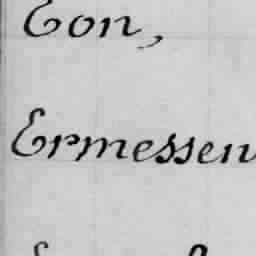 Eon,
Ermessen